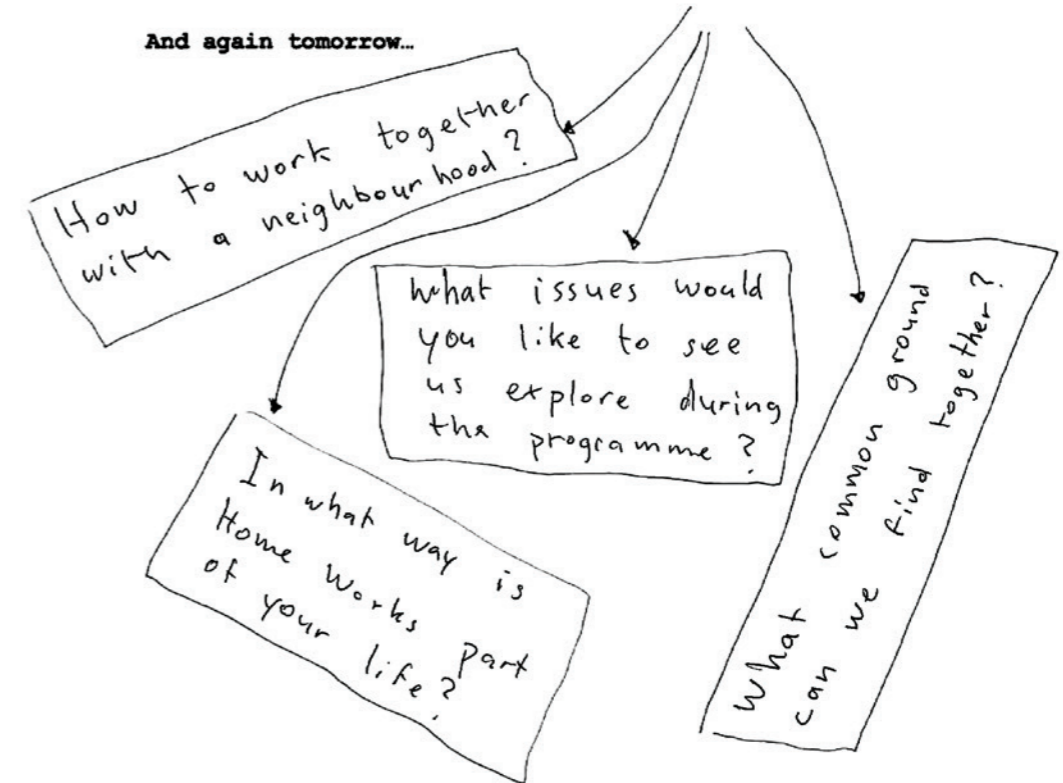 And again tomorrow…
How to work together
with a neighbourhood?
What issues would
you like to see
us explore during
the programme?
In what way is
Home Works part
of your life?
What common ground
can we find together?